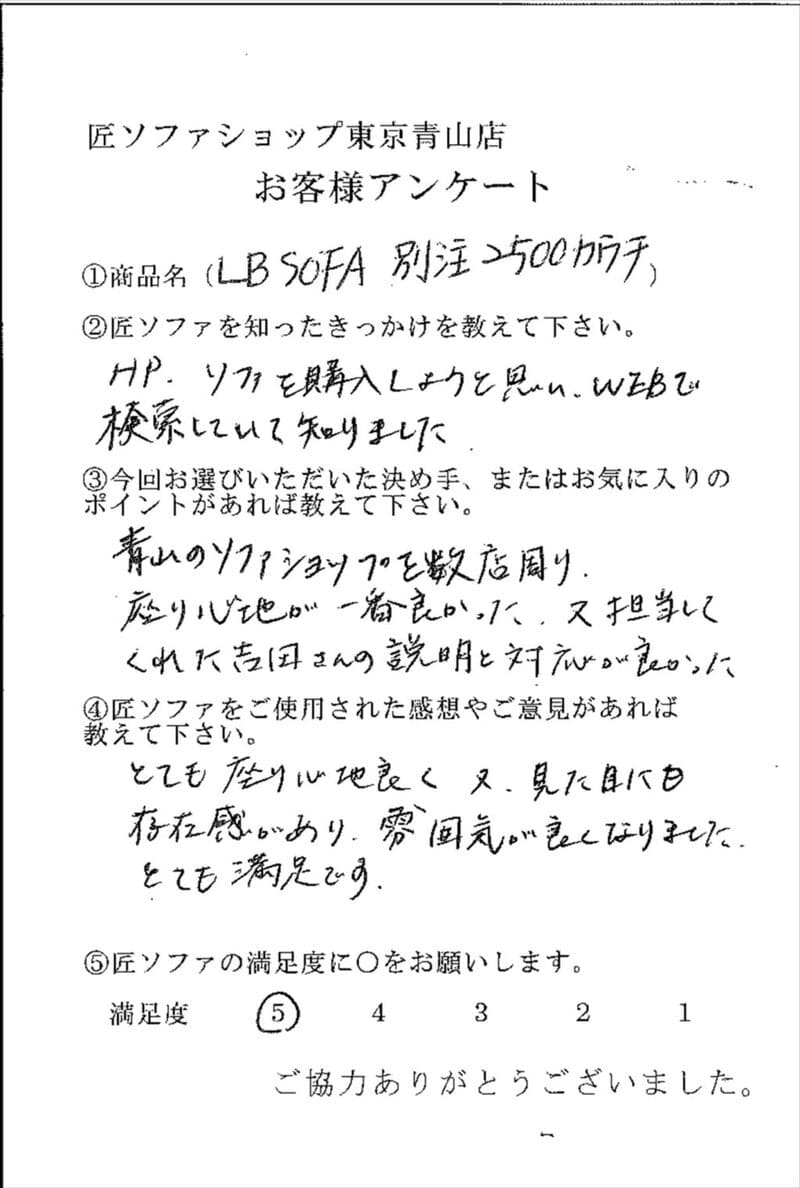 匠ソファショップ東京青山店
お客様アンケート
①商品名（LB SOFA 別注2500カウチ）
②匠ソファを知ったきっかけを教えて下さい。
HP. ソファを購入しようと思い、WEBで
検索していて知りました
③今回お選びいただいた決め手、またはお気に入りの
ポイントがあれば教えて下さい。
青山のソファショップを数店周り、
座り心地が一番良かった、又担当して
くれた吉田さんの説明と対応が良かった
④匠ソファをご使用された感想やご意見があれば
教えて下さい。
とても座り心地良く 又、見た目にも
存在感があり、雰囲気が良くなりました。
とても満足です。
⑤匠ソファの満足度に〇をお願いします。
満足度 5 4 3 2 1
ご協力ありがとうございました。